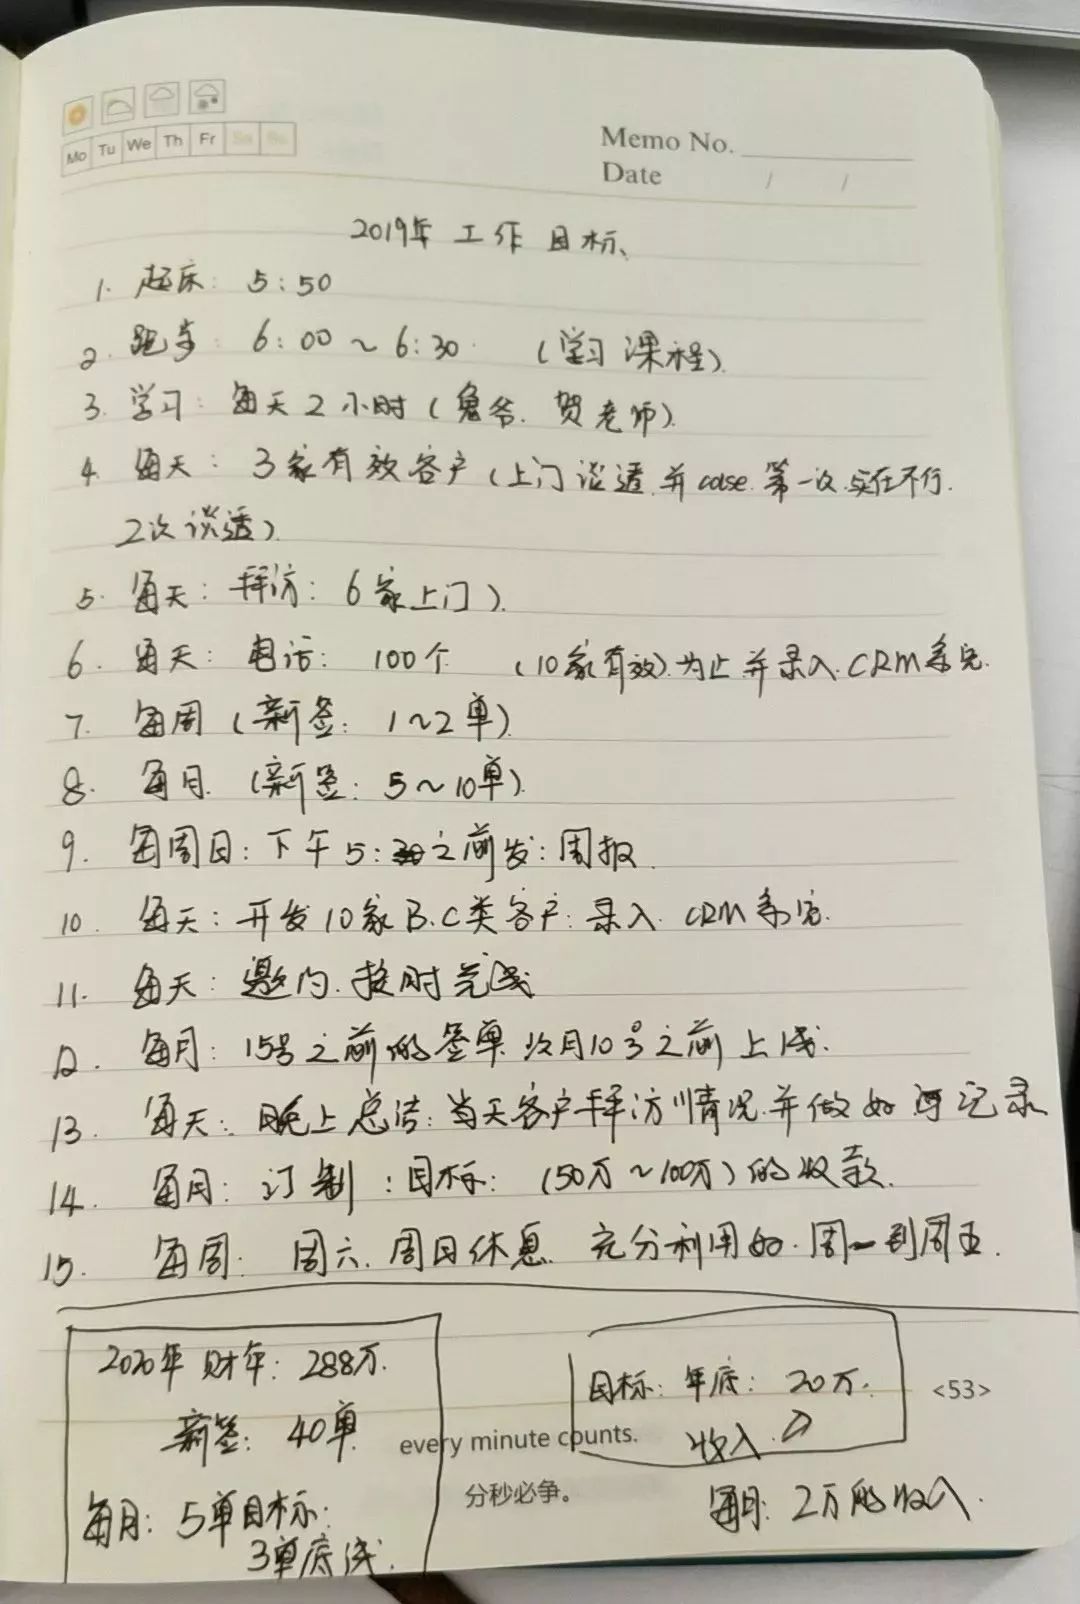 Mo Tu We Th Fr Sa Su
Memo No.
Date / /
2019年 工作目标、
1. 起床: 5:50
2. 跑步: 6:00~6:30 (学习课程)
3. 学习: 每天2小时(鬼爷. 贺老师)
4. 每天: 3家有效客户(上门谈透.并close.第一次.实在不行.
2次谈透)
5. 每天: 拜访: 6家上门)
6. 每天: 电话: 100个 (10家有效)为止并录入.CRM系统.
7. 每周(新签: 1~2单)
8. 每月(新签: 5~10单)
9. 每周日:下午5:30之前发:周报.
10. 每天:开发10家B.C类客户:录入.CRM系统.
11. 每天: 邀约.按时完成
12. 每月: 15号之前的签单.次月10号之前上线.
13. 每天: 晚上总结:当天客户拜访情况.并做好 记录
14. 每月: 订制:目标: (50万~100万)的收款.
15. 每周: 周六.周日休息 充分利用好.周一到周五.
2020年 财年: 288万.
新签: 40单
每月: 5单目标:
3单底线.
目标: 年底: 20万.
收入.
<53>
every minute counts.
分秒必争。
每月: 2万的收入.